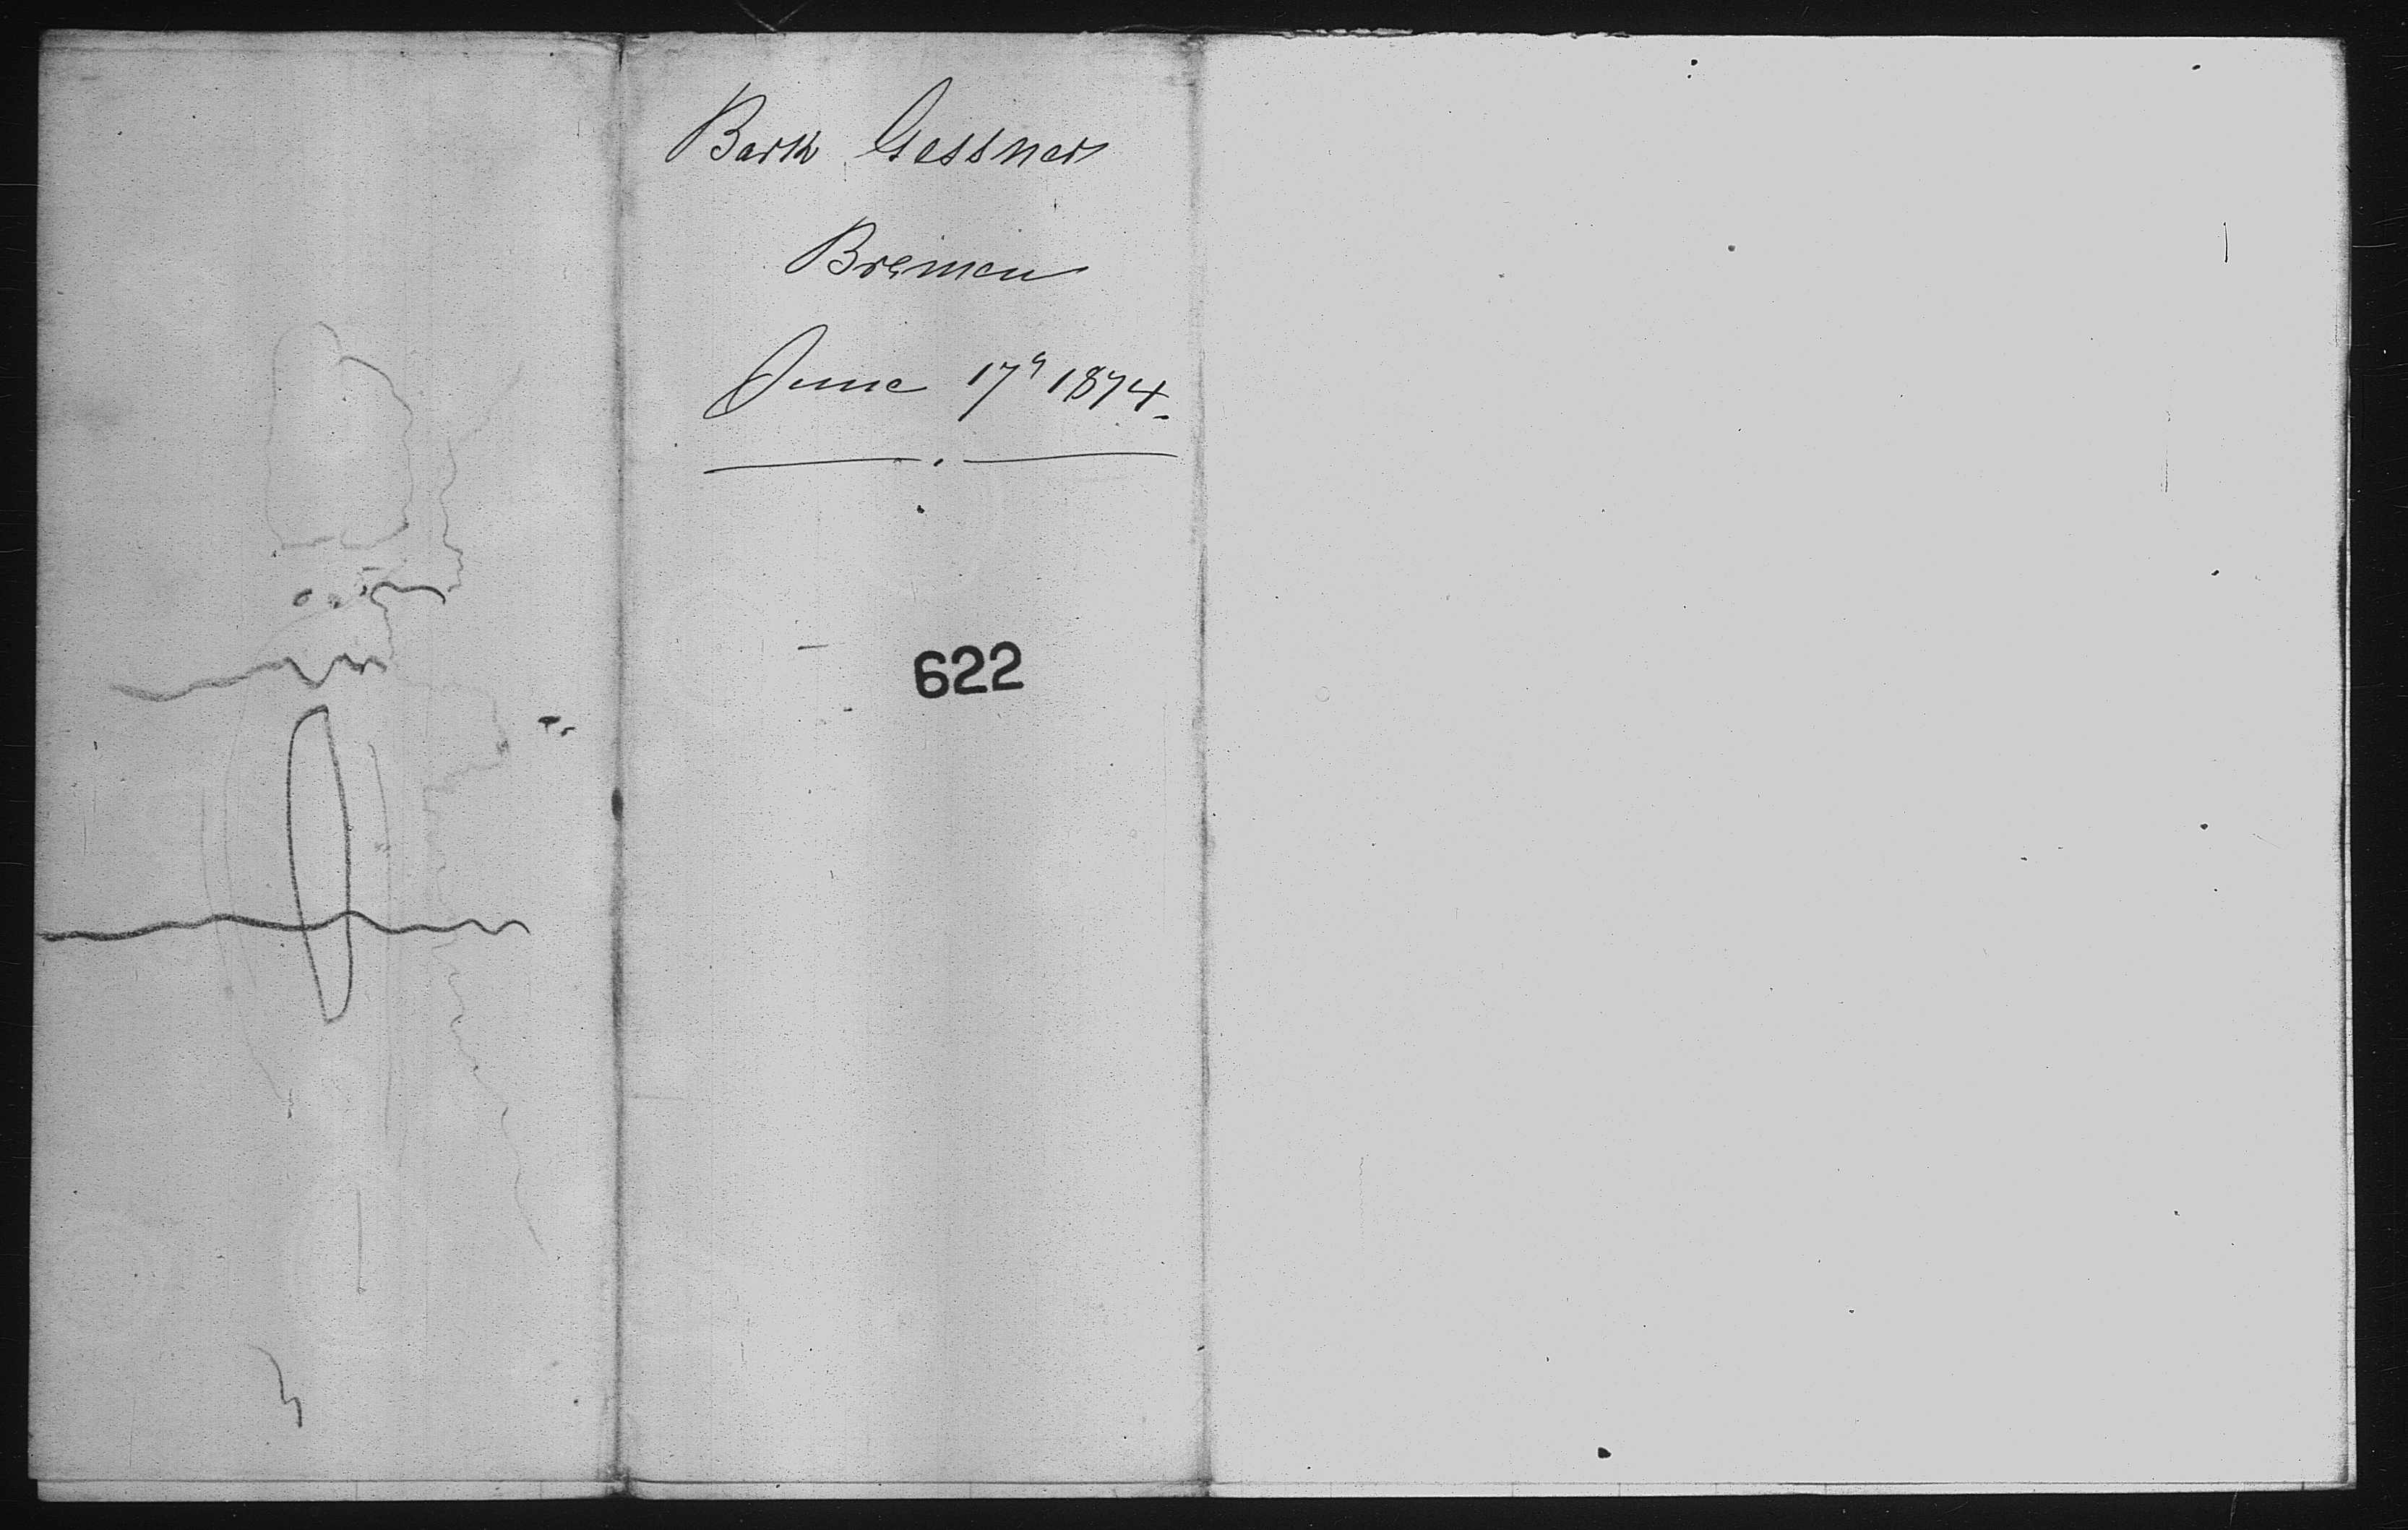 Bark Gessner
Bremen
June 17" 1874.
622